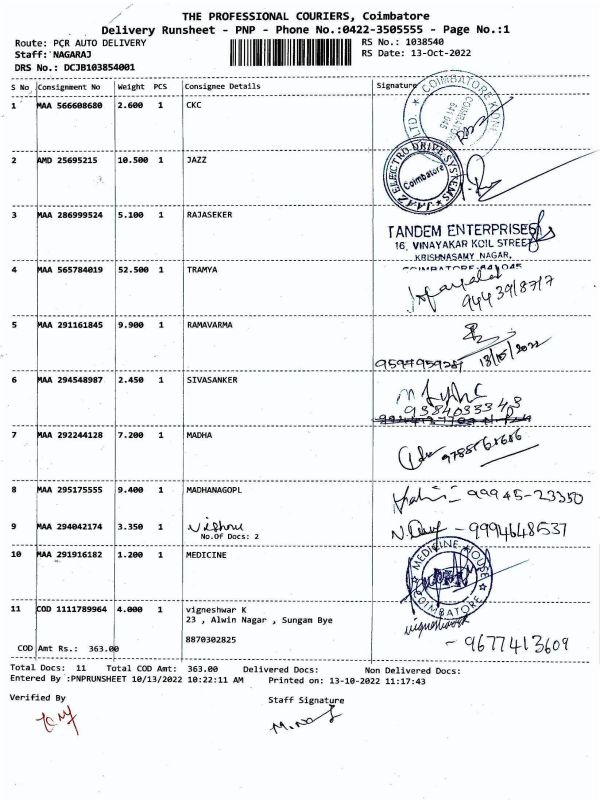 THE PROFESSIONAL COURIERS, Coimbatore
Delivery Runsheet - PNP - Phone No.:0422-3505555 - Page No.:1
Route: PCR AUTO DELIVERY
RS No.: 1038540
Staff: NAGARAJ
RS Date: 13-Oct-2022
DRS No.: DCJB103854001
S No Consignment No Weight PCS Consignee Details Signature
1 MAA 566608680 2.600 1 CKC
COIMBATORE
641 045
2 AMD 25695215 10.500 1 JAZZ
JAAZ ELECTRO DRIVE SYSTEMS
Coimbatore
3 MAA 286999524 5.100 1 RAJASEKER
TANDEM ENTERPRISES
16, VINAYAKAR KOIL STREET
KRISHNASAMY NAGAR,
COIMBATORE-641045
4 MAA 565784019 52.500 1 TRAMYA
9443918717
5 MAA 291161845 9.900 1 RAMAVARMA
13/10/2022
6 MAA 294548987 2.450 1 SIVASANKER
7 MAA 292244128 7.200 1 MADHA
8 MAA 295175555 9.400 1 MADHANAGOPL
99945-23350
9 MAA 294042174 3.350 1
No.Of Docs: 2
- 9994648537
10 MAA 291916182 1.200 1 MEDICINE
MEDICINE HOUSE
COIMBATORE
11 COD 1111789964 4.000 1 vigneshwar K
23 , Alwin Nagar , Sungam Bye
8870302825
vigneshwar
- 9677413609
COD Amt Rs.: 363.00
Total Docs: 11 Total COD Amt: 363.00 Delivered Docs: Non Delivered Docs:
Entered By :PNPRUNSHEET 10/13/2022 10:22:11 AM Printed on: 13-10-2022 11:17:43
Verified By
Staff Signature